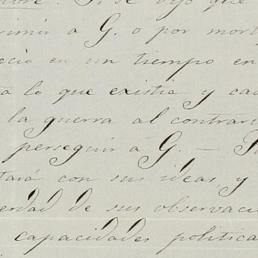 se dijo que
primir á G. o por mor
ocio en un tiempo en
a lo que existia y ca
la guerra al contrari
perseguir á G. —
tará con sus ideas y
erdad de sus observaci
capacidades politica